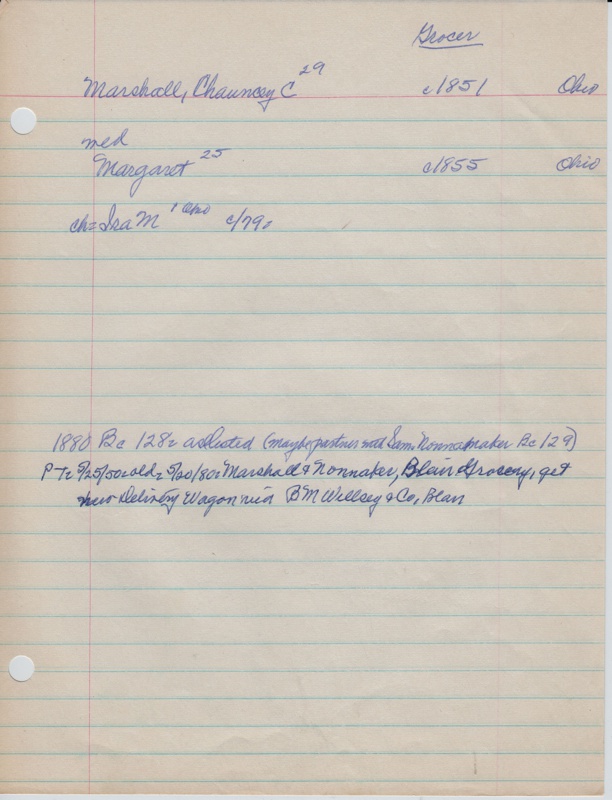 Grocer
Marshall, Chauncey C 29 c1851 Ohio
med
Margaret 25 c1855 Ohio
ch= Isa M 1 Ohio c/79=
1880 Bc 128= as listed (maybe partner med Sam. Nonnamaker Bc 129)
PT= 5/25/50= old= 5/20/80= Marshall & Nonnaker, Blair Grocery, get
new Delivery Wagon via BM Willsey & Co, Blair